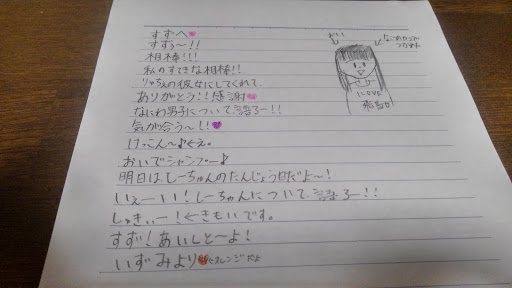 すずへ
すずぅ〜!!
相棒!!!
私のすてきな相棒!!
りゃちんの彼女にしてくれて
ありがとう!!感謝
なにわ男子について語ろー!!
気が合う〜!!
けっこん〜♪ぐえ。
おいでシャンプー♪
明日は、しーちゃんのたんじょう日だよ〜!
いぇーい!しーちゃんについて語ろー!!
しゃきぃー!←きもいです。
すず!あいしと〜よ!
いずみより ←オレンジだよ
I LOVE